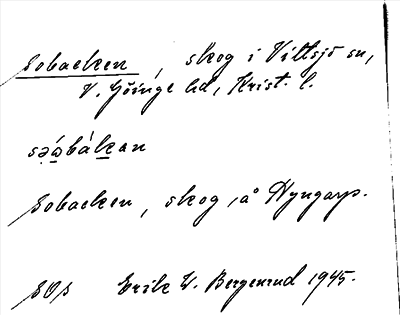 Sobacken, skog i Vittsjö sn,
V. Göinge hd, Krist. l.
Sobacken, skog, å Nyngarp.
SOs Erik W. Bergenrud 1945.